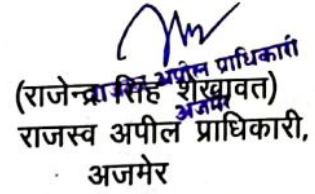 राजस्व अपील प्राधिकारी
अजमेर
(राजेन्द्र सिंह शेखावत)
राजस्व अपील प्राधिकारी,
अजमेर